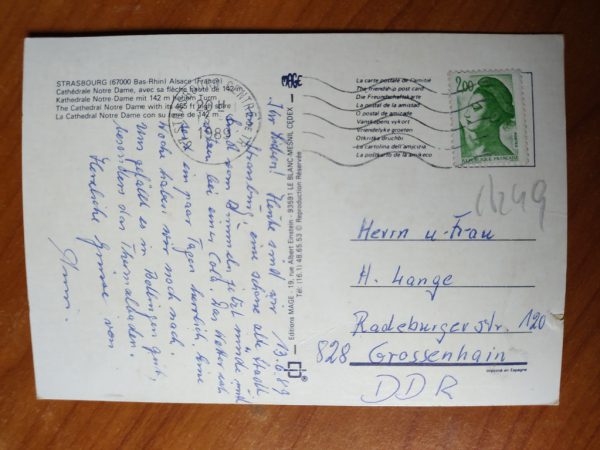 STRASBOURG (67000 Bas-Rhin) Alsace (France)
Cathédrale Notre Dame, avec sa flèche haute de 142 m
Kathedrale Notre Dame mit 142 m hohem Turm
The Cathedral Notre Dame with its 465 ft high spire
La Cathedral Notre Dame con su torre de 142 m.
MAGE
19.6.89
Ihr Lieben! Heute sind wir
in Strassburg, eine schöne alte Stadt.
Sind vom Bummeln jetzt müde und
sitzen bei einer Cola. Das Wetter ist
seit ein paar Tagen herrlich, eine
Woche haben wir noch nach.
Uns gefällt es in Bellingen gut,
besonders das Thermalbaden.
Herzliche Grüsse von
Editions MAGE - 19, rue Albert Einstein - 93591 LE BLANC-MESNIL CEDEX
Tél. (16.1) 48.65.53 © Reproduction Réservée
La carte postale de l'amitié
The friendship post card
Die Freundschaftskarte
La postal de la amistad
O postal de amizade
Vanskapens vykort
Vriendelijke groeten
Otkritka druchbi
La cartolina dell'amicizia
La poŝtkarto de la amikeco
2,00
REPUBLIQUE FRANÇAISE
1249
Herrn u. Frau
H. Lange
Radeburgerstr. 120
828 Grossenhain
DDR
Imprimé en Espagne